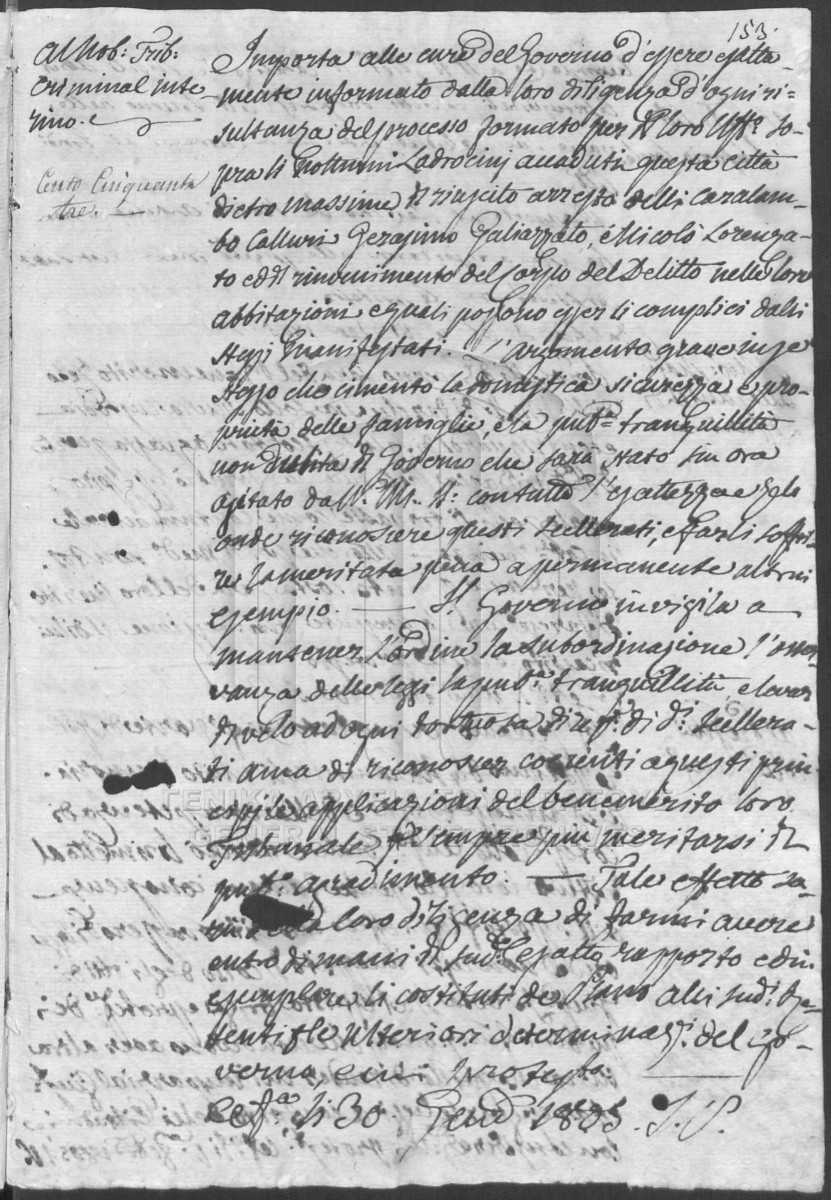 153
Al Nob: Trib:
Criminal inte
rino.
Cento Cinquanta
tre.
Importa alle cure del Governo d'essere esatta-
mente informato dalla loro diligenza d'ogni ri=
sultanza del processo formato per il loro Uffo so
pra li notturni Ladrocinj accaduti in questa Città
dietro massime il riuscito arresto delli Caralam-
bo Calluri Gerasimo Galiazzato, e Nicolò Lorenza-
to ed il rinvenimento del Corpo del Delitto nelle loro
abbitazioni e quali possono esser li complici dalli
stessi manifestati. L'argomento grave in se
stesso che cimenta la domestica sicurezza e pro-
prietà delle famiglie, e la pubca tranquillità
non dubita il Governo che sarà stato sin ora
agitato dall' con tutta l'esattezza e zelo
onde riconoscere questi scellerati, e farli soffri-
re la meritata pena a permanente altrui
esempio. — Il Governo invigila a
mantener l'ordine la subordinazione l'osser
vanza delle leggi la pubca tranquillità, e levar
il velo ad ogni tortuosa di di scellera-
ti ama di riconoscer coerenti a questi prin-
cipj le applicazioni del benemerito loro
Tribunale per sempre più meritarsi il
pubco agradimento. — Tale effetto sa-
rà della loro diligenza di farmi avere
entro dimani il sudo esatto rapporto ed in
esemplare li costituti de Plano alli sudi
tenti per le ulteriori determinazi del Go-
verno, e mi protesto.
Ceffa li 30 Genº 1805. S. V.
ΓΕΝΙΚΑ ΑΡΧΕΙΑ
GENERAL STATE